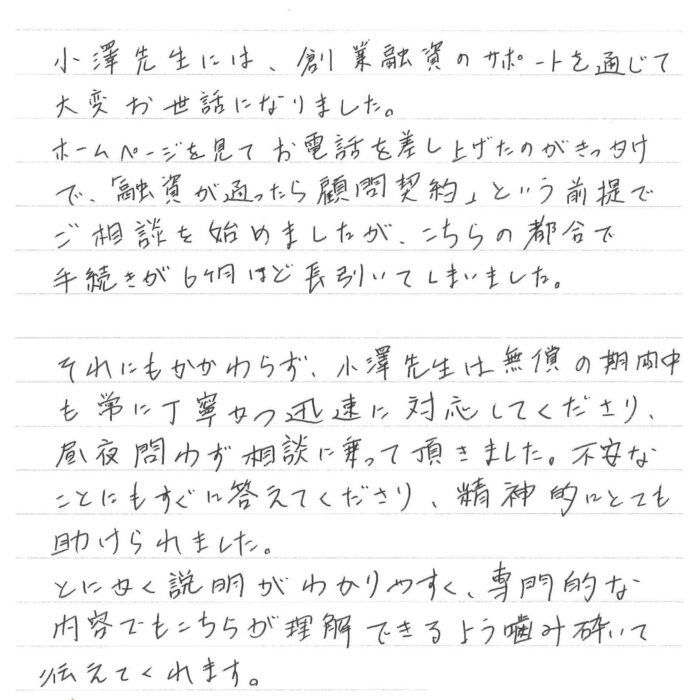 小澤先生には、創業融資のサポートを通じて
大変お世話になりました。
ホームページを見てお電話を差し上げたのがきっかけ
で、「融資が通ったら顧問契約」という前提で
ご相談を始めましたが、こちらの都合で
手続きが6ヶ月ほど長引いてしまいました。
それにもかかわらず、小澤先生は無償の期間中
も常に丁寧かつ迅速に対応してくださり、
昼夜問わず相談に乗って頂きました。不安な
ことにもすぐに答えてくださり、精神的にとても
助けられました。
とにかく説明がわかりやすく、専門的な
内容でもこちらが理解できるよう噛み砕いて
伝えてくれます。